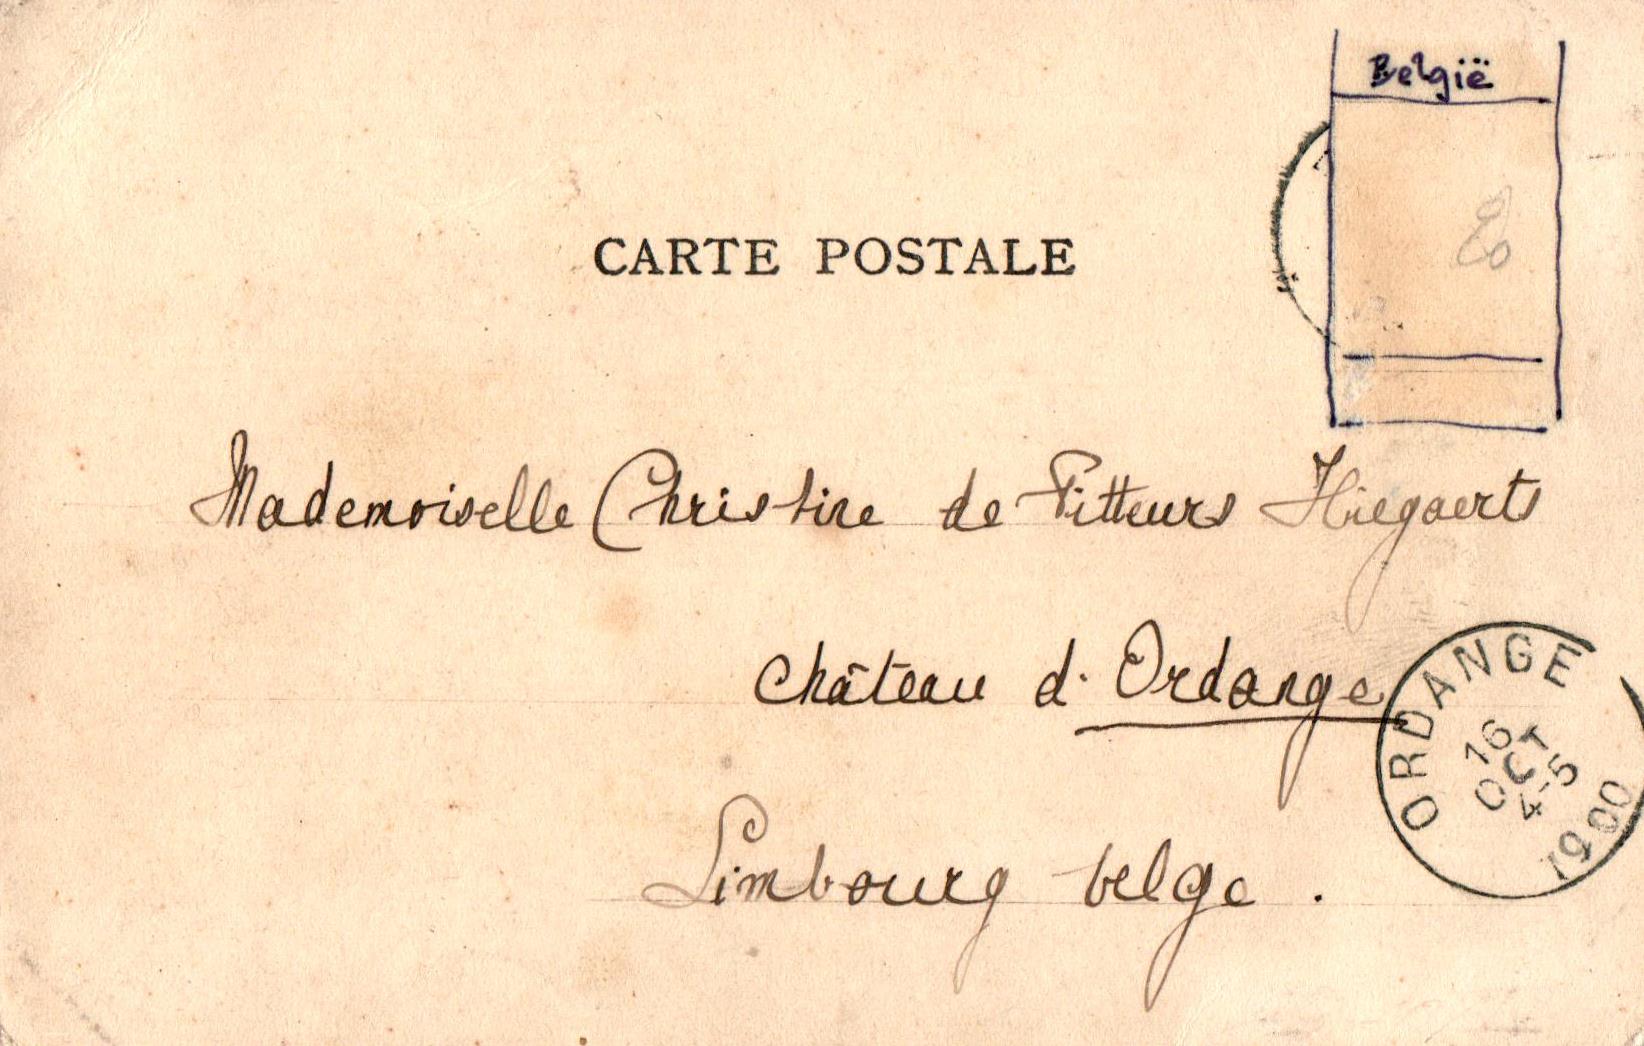 België
CARTE POSTALE
Mademoiselle Christine de Pitteurs Hiegaerts
Château d'Ordange
Limbourg belge.
ORDANGE
16
OCT
4-5
1900